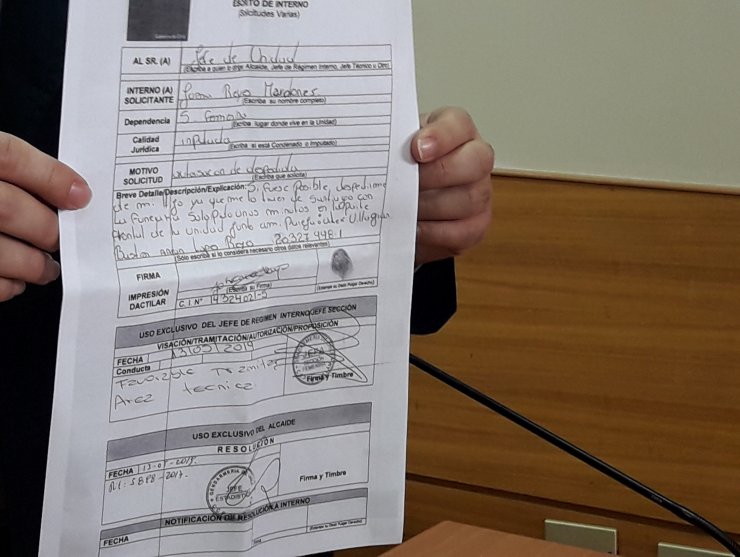 ESCRITO DE INTERNO
(Solicitudes Varias)
AL SR. (A) Jefe de Unidad
(Escriba a quien lo dirige Alcaide, Jefe de Régimen Interno, Jefe Técnico u Otro)
INTERNO (A) SOLICITANTE Rojo
(Escriba su nombre completo)
Dependencia S.
(Escriba lugar donde vive en la Unidad)
Calidad Jurídica imputada
(Escriba si está Condenado o Imputado)
MOTIVO SOLICITUD de despedida
(Escriba que solicita)
Breve Detalle/Descripción/Explicación: Si fuese posible, despedirme
de mi hijo ya que me lo traen de Santiago con
la Funeraria Solo Pido unos minutos en la parte
frontal de la Unidad junto a mi Pareja
Rojo 20327448-1
(Sólo escriba si lo considera necesario otros datos relevantes)
FIRMA
(Escriba su Firma)
IMPRESIÓN DACTILAR C.I. N° 14324021-5
(Estampe su Dedo Pulgar Derecho)
USO EXCLUSIVO DEL JEFE DE REGIMEN INTERNO/JEFE SECCIÓN
VISACIÓN/TRAMITACIÓN/AUTORIZACIÓN/PROPOSICIÓN
FECHA 13/05/2019
Conducta
Favorable Tramitar
Area tecnica
Firma y Timbre
USO EXCLUSIVO DEL ALCAIDE
RESOLUCIÓN
FECHA 13-05-2019.
Firma y Timbre
GENDARMERIA DE
JEFE
ESTADISTICA
NOTIFICACIÓN DE RESOLUCIÓN A INTERNO
FECHA
(Estampe su Dedo Pulgar Derecho)